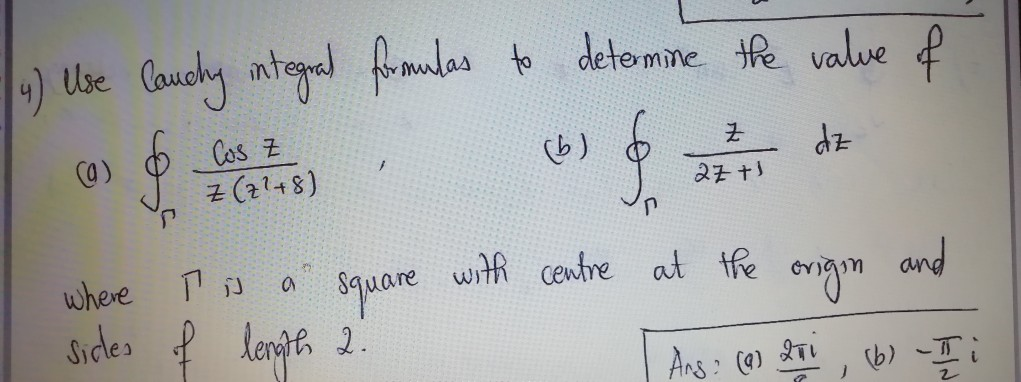 4) Use Cauchy integral formulas to determine the value of
(a) ∮_Γ Cos z / z(z²+8) , (b) ∮_Γ z / 2z+1 dz
where Γ is a square with centre at the origin and
sides of length 2.
Ans: (a) 2πi , (b) -π/2 i